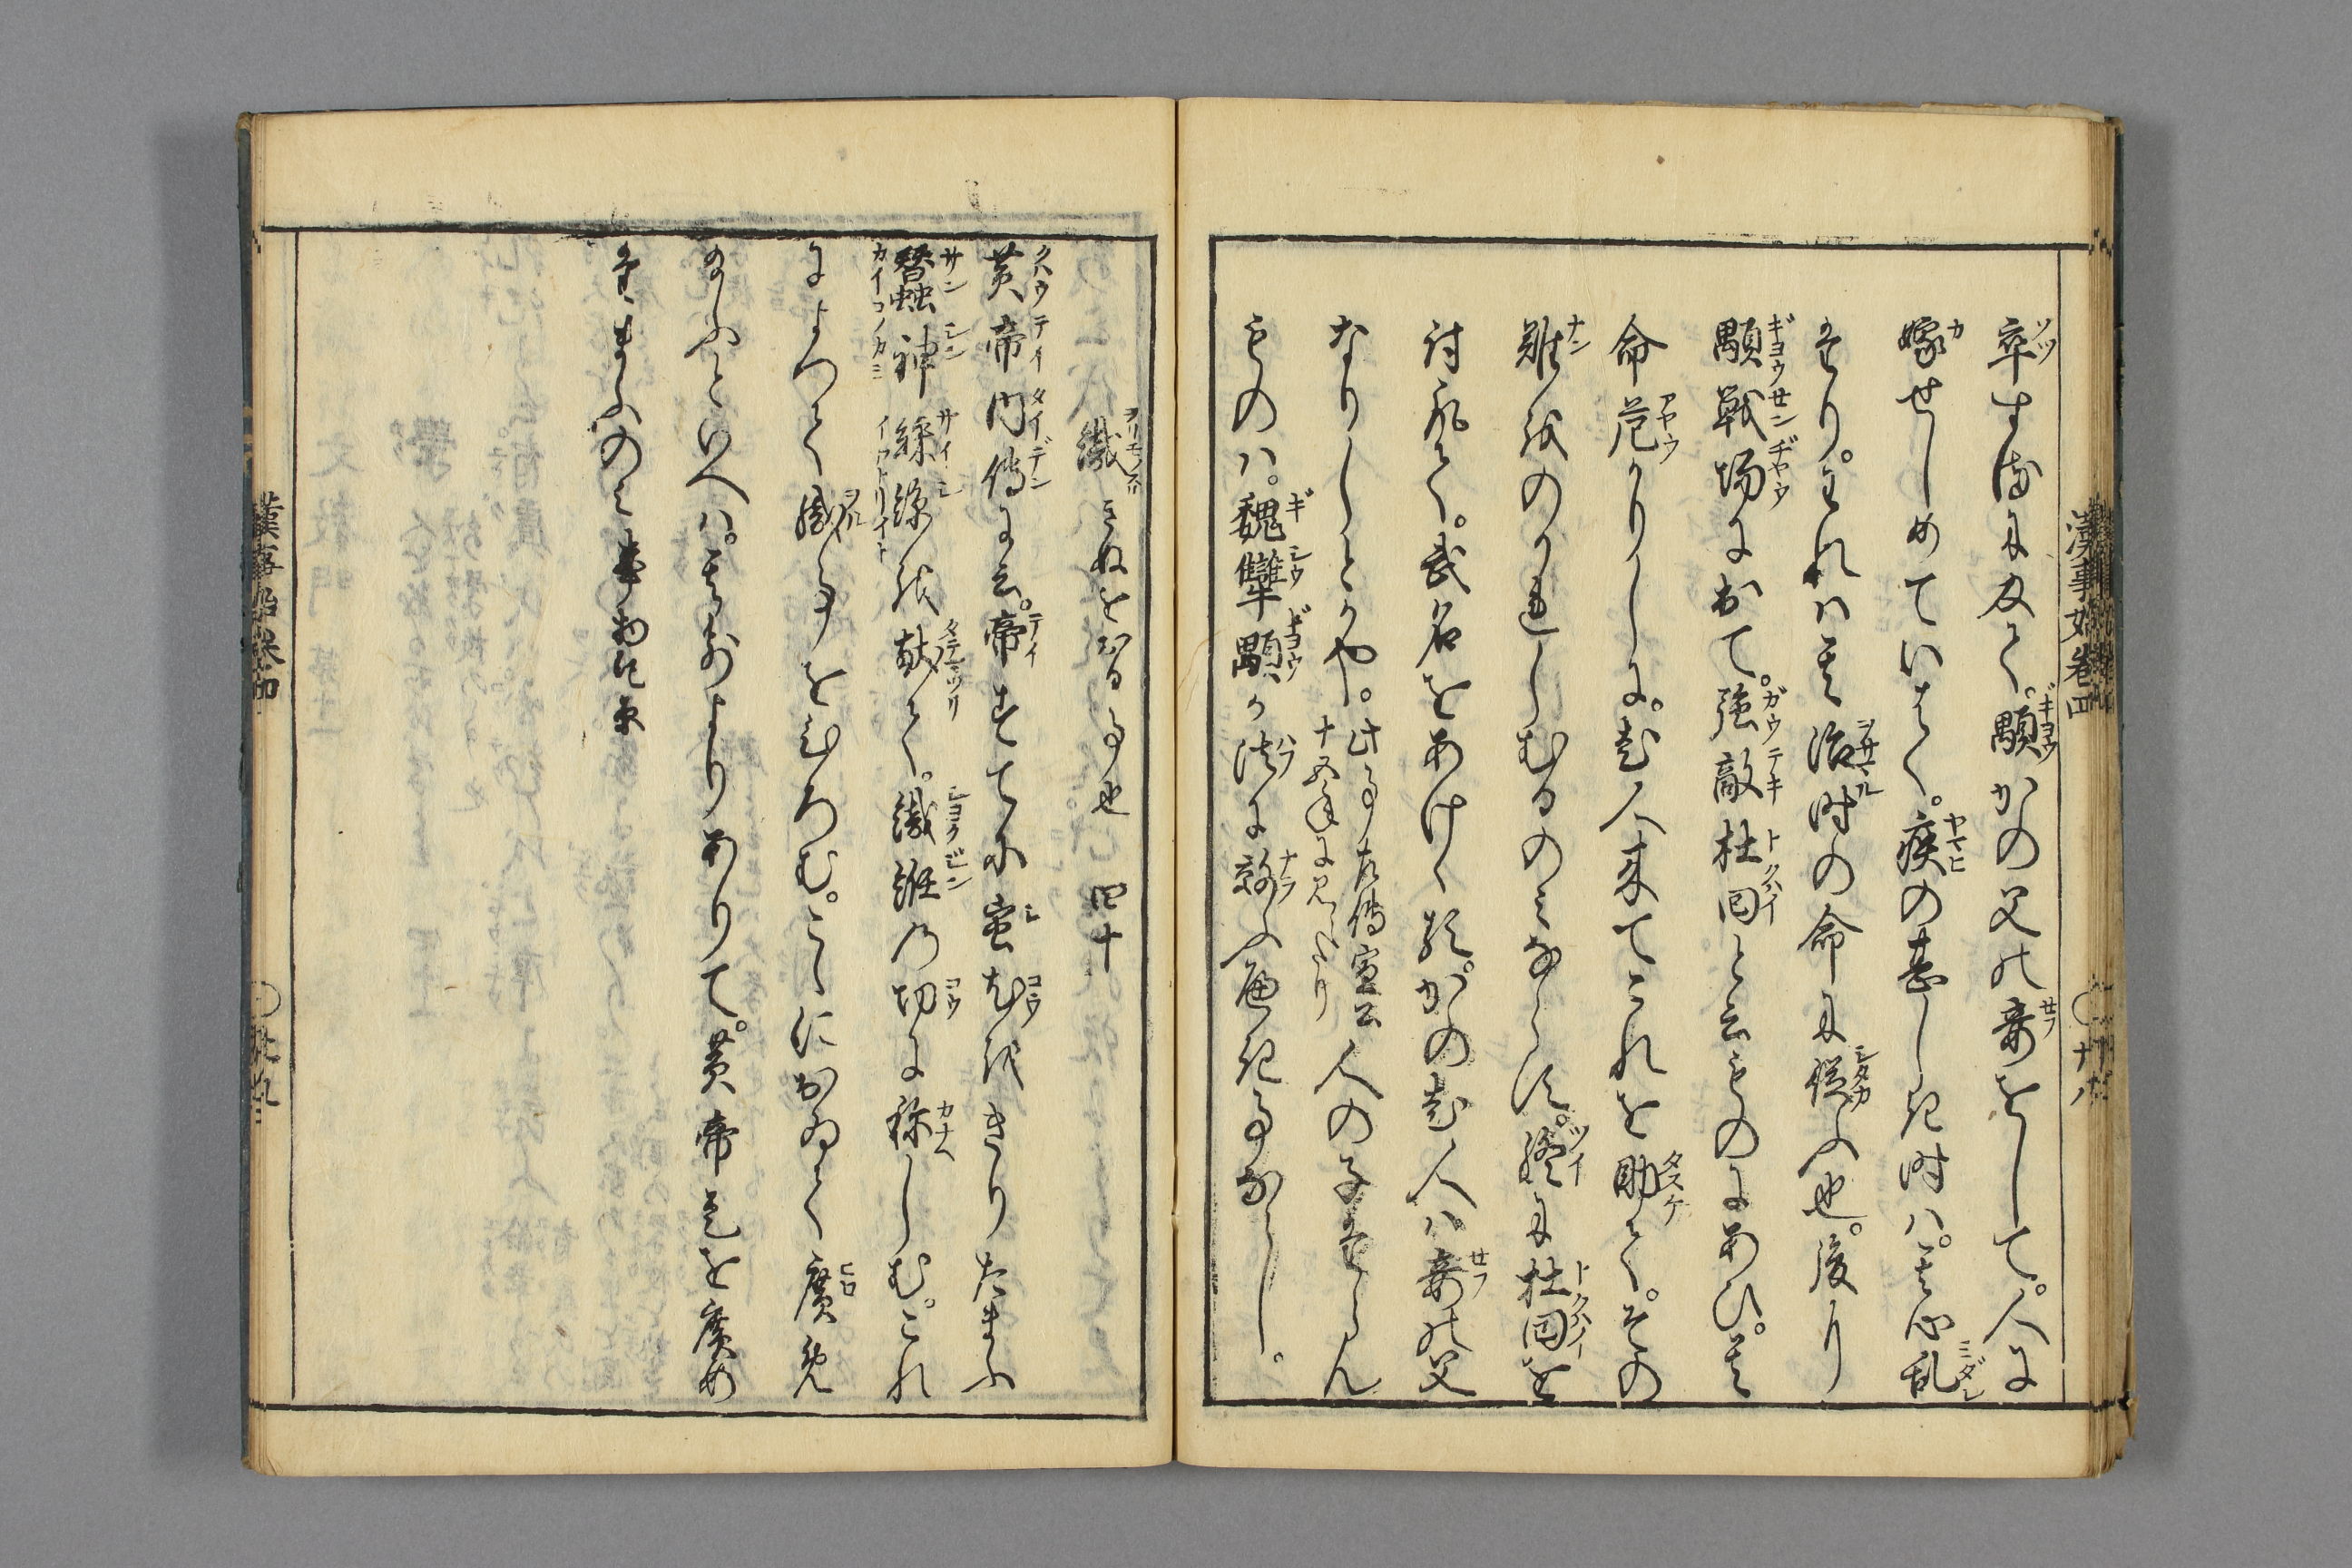 卒するに及て。顆かの父の妾をして。人に
嫁せしめていはく。疾の甚しき時ハ。其心乱
たり。それハ其治時の命に従ふ也。後り
顆戦場におゐて。強敵杜回と云ものにあひ。其
命危かりしに。老人来てこれを助て。その
難をのかれしむるのみならす。終に杜回を
討取て。武名をあけく然。かの老人ハ妾の父
なりしとかや。此事左傳宣公十五年に見へたり 人の子たらん
ものハ。魏犨顆か法に效ふ へき事なるへし。
漢事始巻四
十八
織 きぬをおる事也 四十
黄帝内傳に云。帝すてに蚩尤をきりたまふ
蠶神絲綿を献て。織紝の功に称しむ。これ
によつて織事をはしむ。こゝにおゐて廣免
給ふといへハ。其前よりありて。黄帝是を廣め
たまふのみ事物紀原